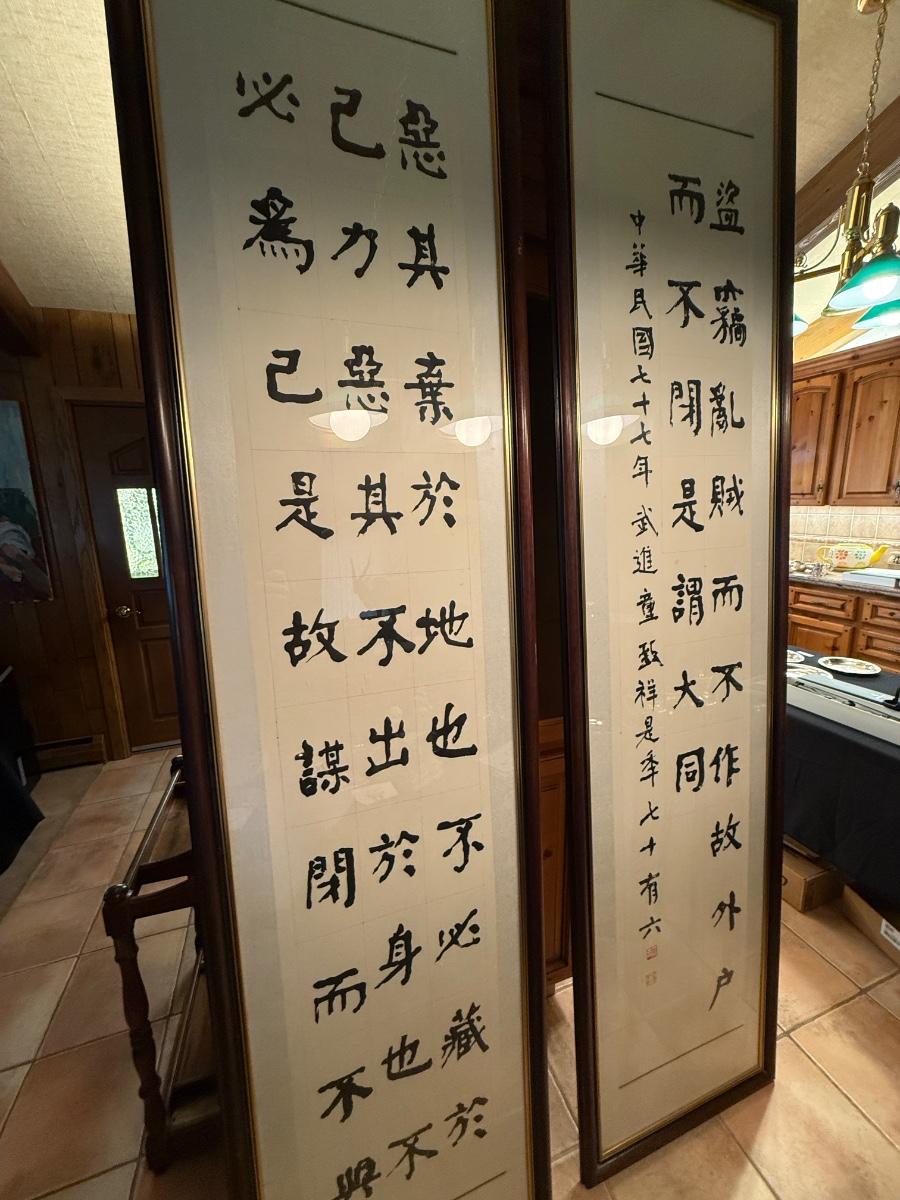 惡其棄於地也不必藏於
己力惡其不出於身也不
必爲己是故謀閉而不興
盜竊亂賊而不作故外户
而不閉是謂大同
中華民國七十七年 武進童致祥是秊七十有六